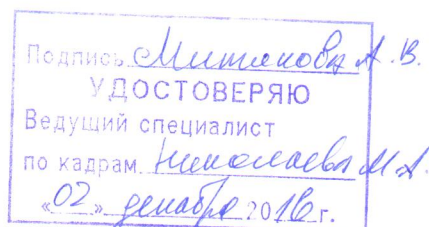 Подпись Митякова А.В.
УДОСТОВЕРЯЮ
Ведущий специалист
по кадрам Николаева М.А.
«02» декабря 2016 г.